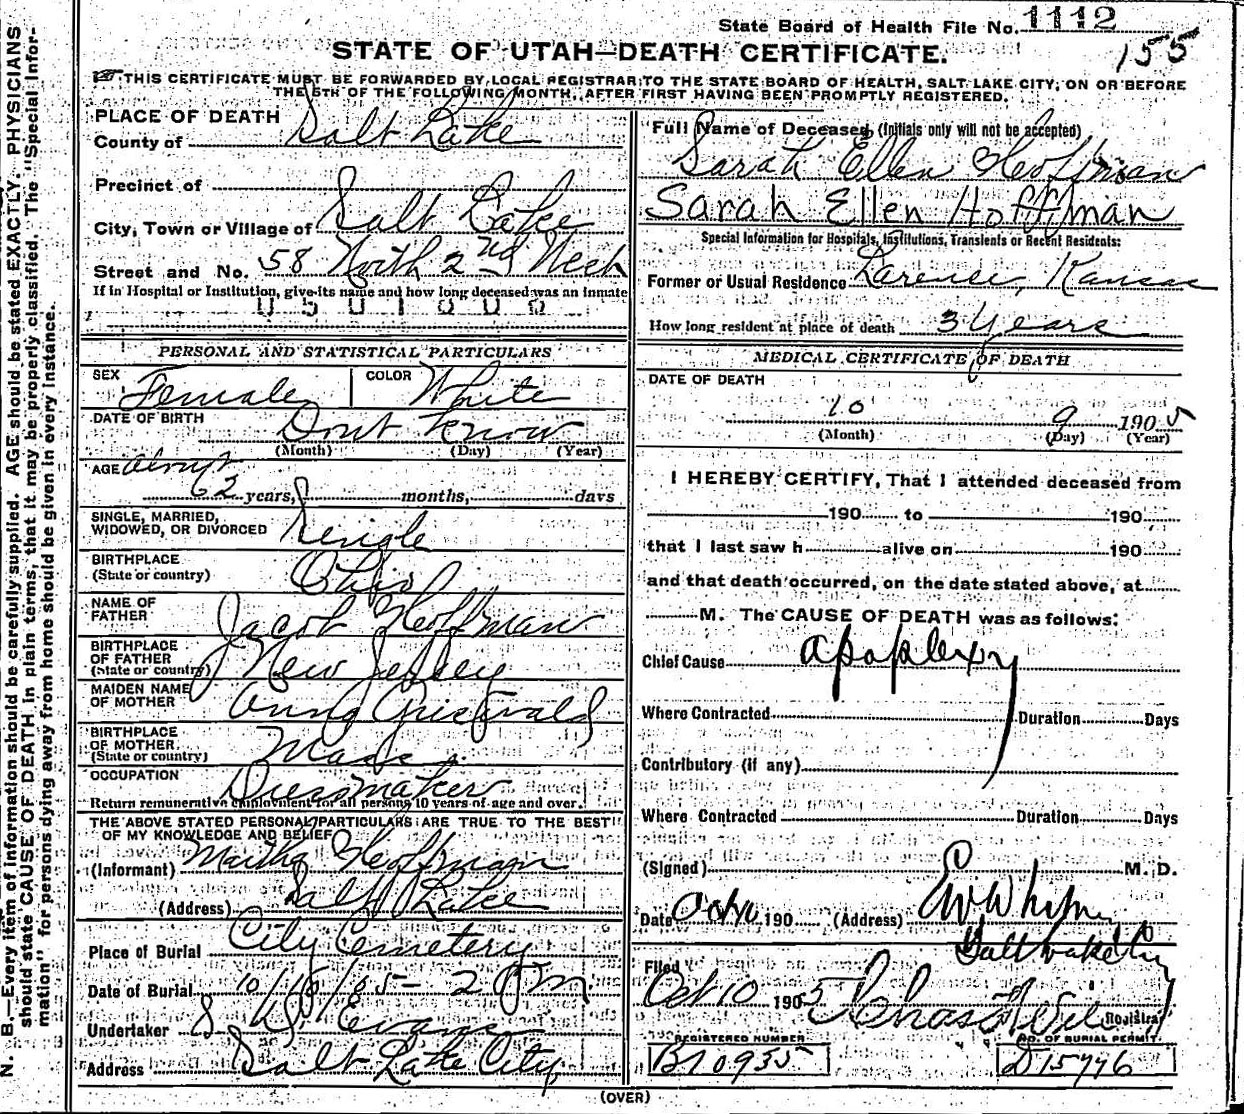 State Board of Health File No. 1112
155
STATE OF UTAH—DEATH CERTIFICATE.
THIS CERTIFICATE MUST BE FORWARDED BY LOCAL REGISTRAR TO THE STATE BOARD OF HEALTH, SALT LAKE CITY, ON OR BEFORE
THE 5TH OF THE FOLLOWING MONTH, AFTER FIRST HAVING BEEN PROMPTLY REGISTERED.
PLACE OF DEATH
County of Salt Lake
Precinct of
City, Town or Village of Salt Lake
Street and No. 58 North 2nd West
If in Hospital or Institution, give its name and how long deceased was an inmate
0501006
PERSONAL AND STATISTICAL PARTICULARS
SEX Female COLOR White
DATE OF BIRTH Dont Know
(Month) (Day) (Year)
AGE about
62 years, months, days
SINGLE, MARRIED,
WIDOWED, OR DIVORCED Single
BIRTHPLACE
(State or country) Ohio
NAME OF
FATHER Jacob Hoffman
BIRTHPLACE
OF FATHER
(State or country) New Jersey
MAIDEN NAME
OF MOTHER Anna Griswald
BIRTHPLACE
OF MOTHER
(State or country) Mass.
OCCUPATION Dressmaker
Return remunerative employment for all persons 10 years of age and over.
THE ABOVE STATED PERSONAL PARTICULARS ARE TRUE TO THE BEST
OF MY KNOWLEDGE AND BELIEF
(Informant) Martha Hoffman
(Address) Salt Lake
Place of Burial City Cemetery
Date of Burial 10/10/05 - 2 P.M.
Undertaker S. D. Evans
Address Salt Lake City,
Full Name of Deceased (Initials only will not be accepted)
Sarah Ellen Hoffman
Sarah Ellen Hoffman
Special Information for Hospitals, Institutions, Transients or Recent Residents:
Former or Usual Residence Larense, Kansas
How long resident at place of death 3 Years
MEDICAL CERTIFICATE OF DEATH
DATE OF DEATH
10 9 1905
(Month) (Day) (Year)
I HEREBY CERTIFY, That I attended deceased from
190 to 190
that I last saw h alive on 190
and that death occurred, on the date stated above, at
M. The CAUSE OF DEATH was as follows:
Chief Cause apoplexy
Where Contracted Duration Days
Contributory (if any)
Where Contracted Duration Days
(Signed) M. D.
Date Oct 10 190 (Address)
Salt Lake City
Filed
Oct 10 1905 Chas
Registrar
REGISTERED NUMBER NO. OF BURIAL PERMIT
B10935 D15776
(OVER)
N. B.—Every item of information should be carefully supplied. AGE should be stated EXACTLY. PHYSICIANS
should state CAUSE OF DEATH in plain terms, that it may be properly classified. The "Special Infor-
mation" for persons dying away from home should be given in every instance.